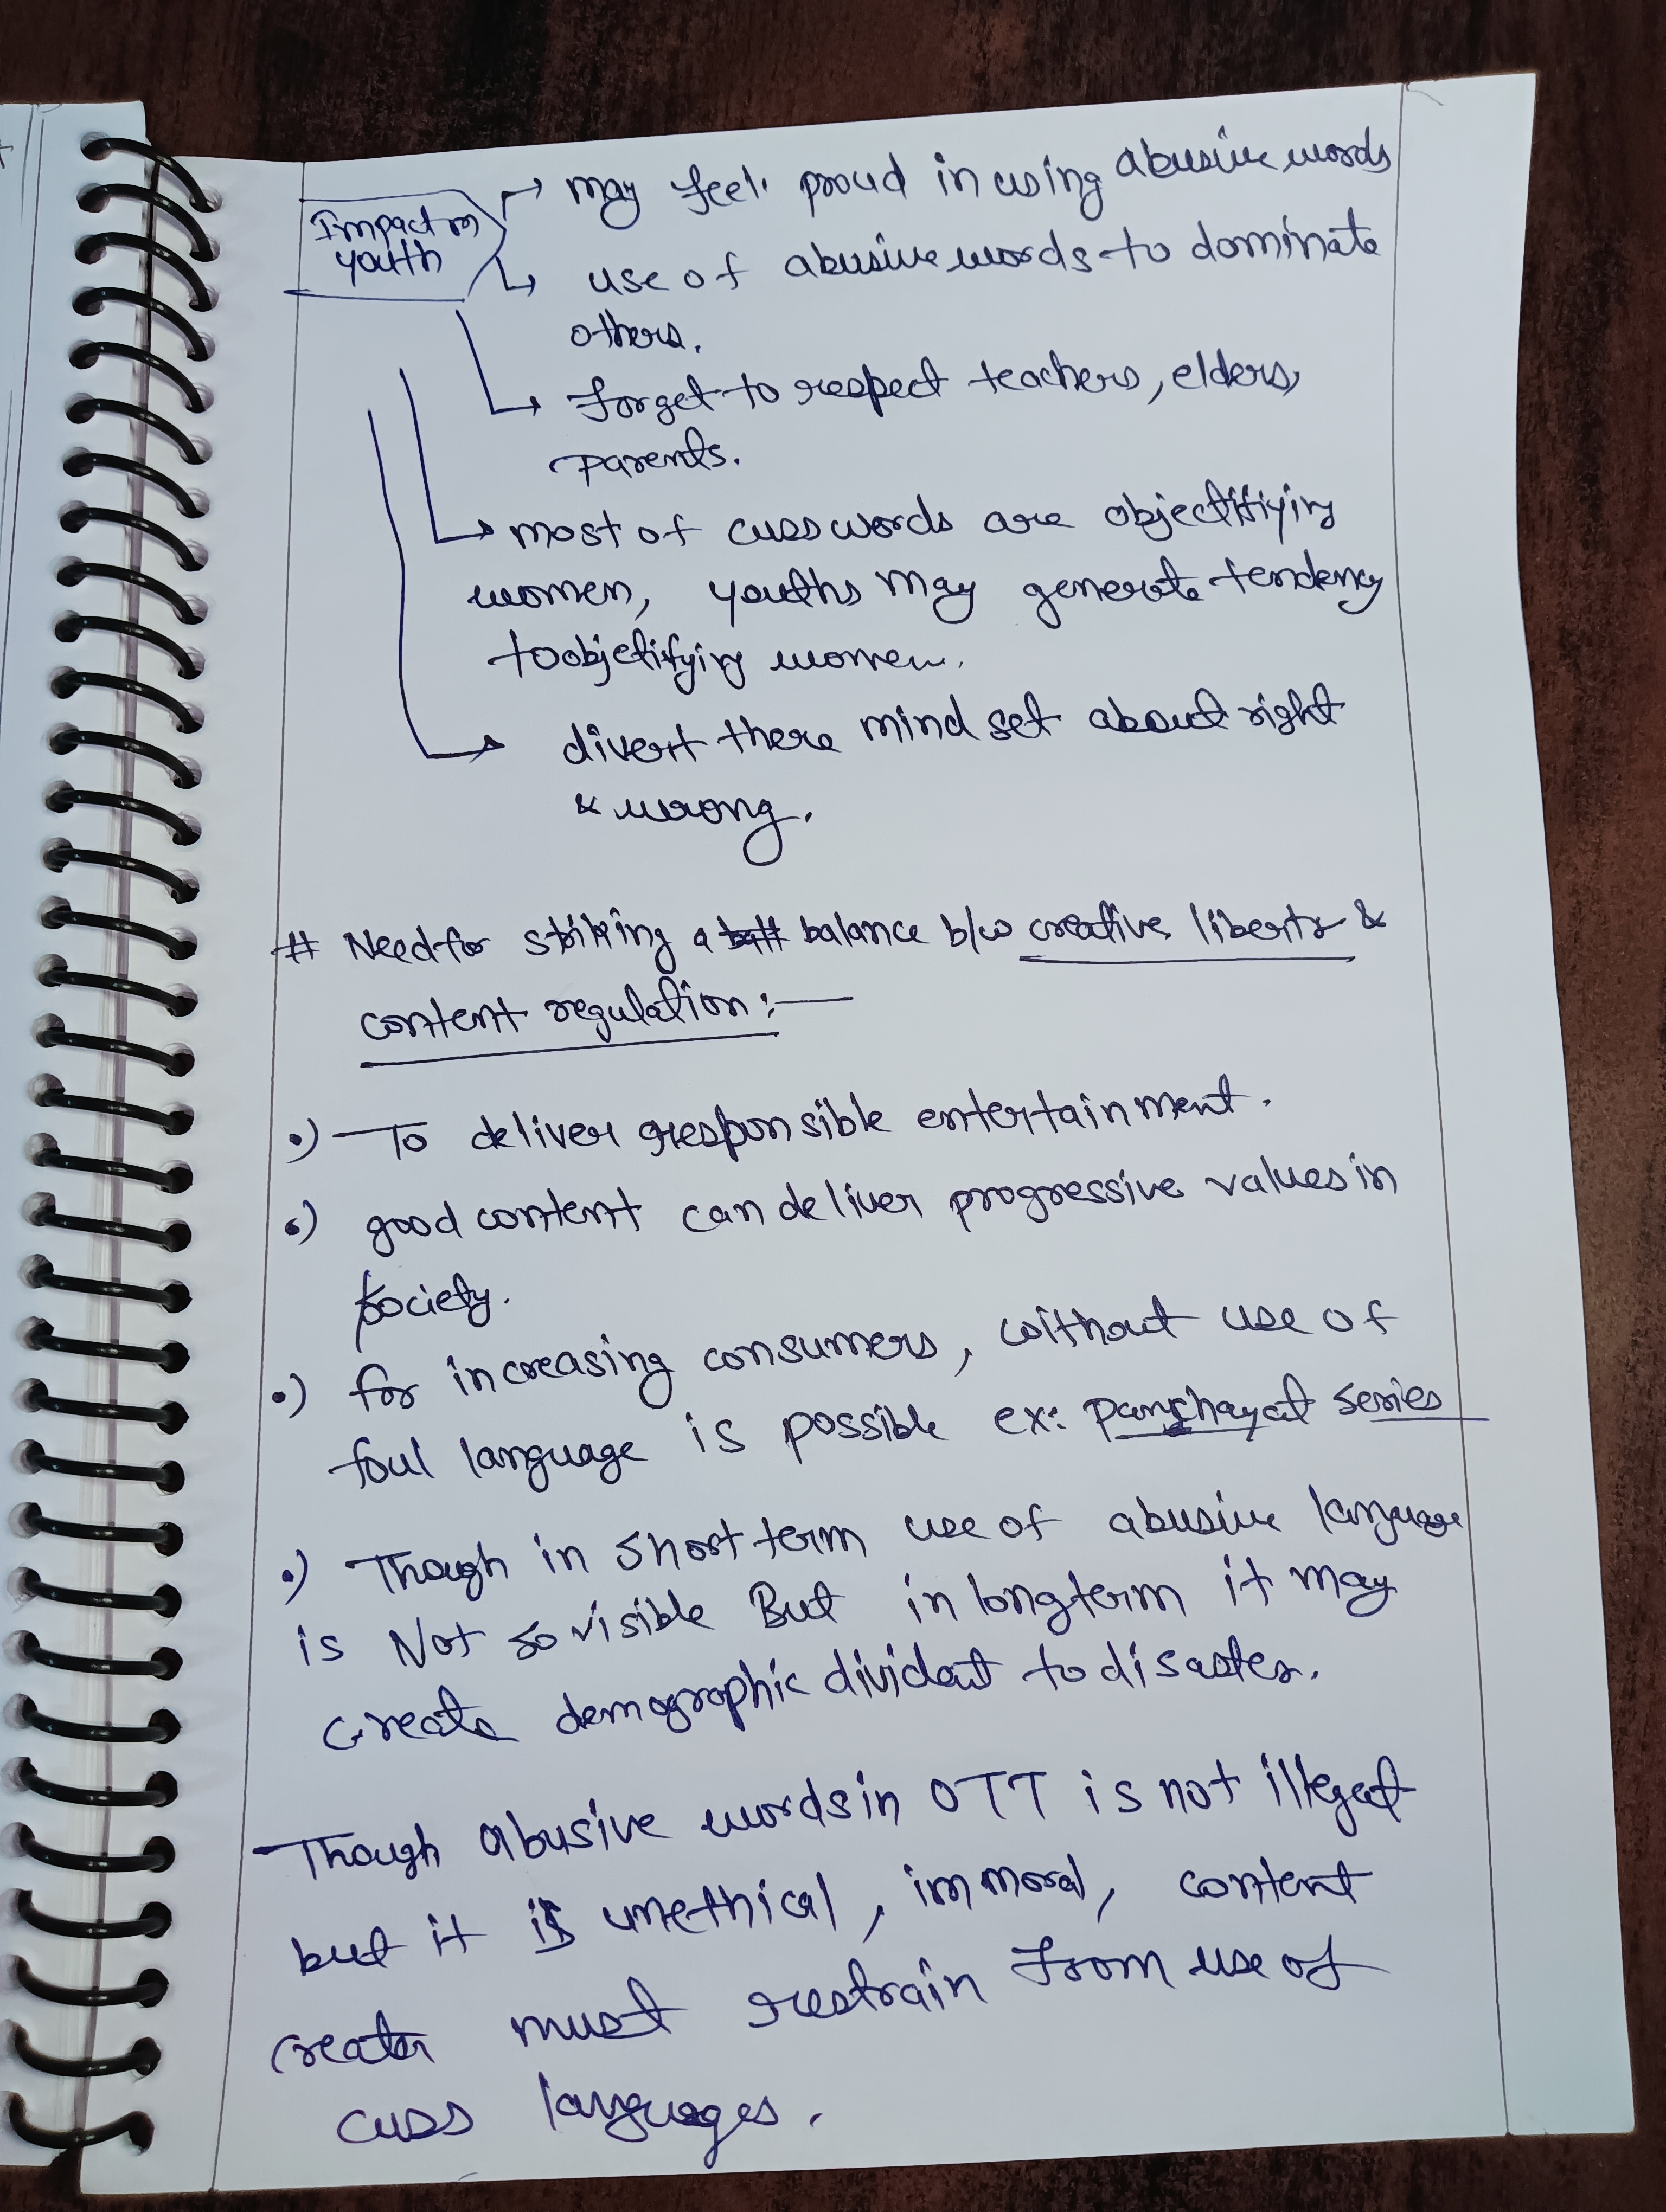 Impact on
youth
→ may feel proud in using abusive words
↳ use of abusive words to dominate
others.
↳ forget to respect teachers, elders,
parents.
↳ most of cuss words are objectifiying
women, youths may generate tendency
to objetifying women.
→ divert there mind set about right
& wrong.
# Need for striking a balance b/w creative liberty &
content regulation :—
•) To deliver responsible entertainment.
•) good content can deliver progressive values in
society.
•) for increasing consumers, without use of
foul language is possible ex: Panchayat series
•) Though in short term use of abusive language
is Not so visible But in long term it may
create demographic dividat to disaster.
Though abusive words in OTT is not illegal
but it is unethical, immoral, content
creator must restrain from use of
cuss languages.